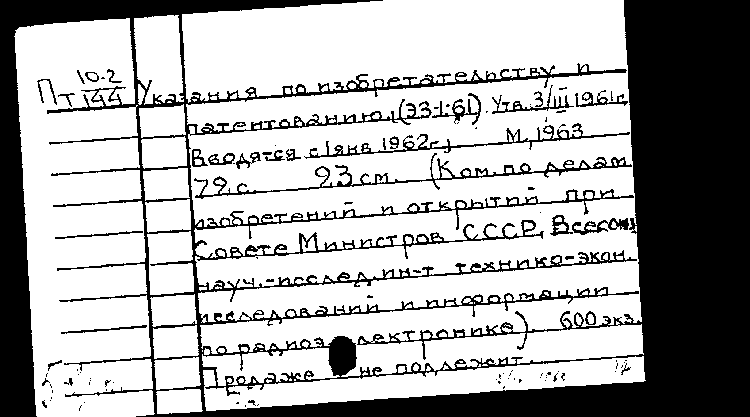 Пт 10-2/144 Указания по изобретательству и
патентованию, (ЭЗ-1-61). Утв. 3/III 1961г.
Вводятся с 1 янв 1962г., М, 1963
79 с. 23 см. (Ком. по делам
изобретений и открытий при
Совете Министров СССР, Всесоюз
науч.-исслед. ин-т технико-экон.
исследований и информации
по радиоэлектронике). 600 экз.
Продаже не подлежит.